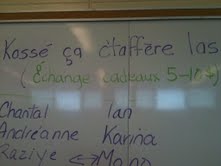 Kossé ça ctaffère las
(Échange cadeaux 5-10$)
Chantal Ian
Andréanne Karina
Raziye